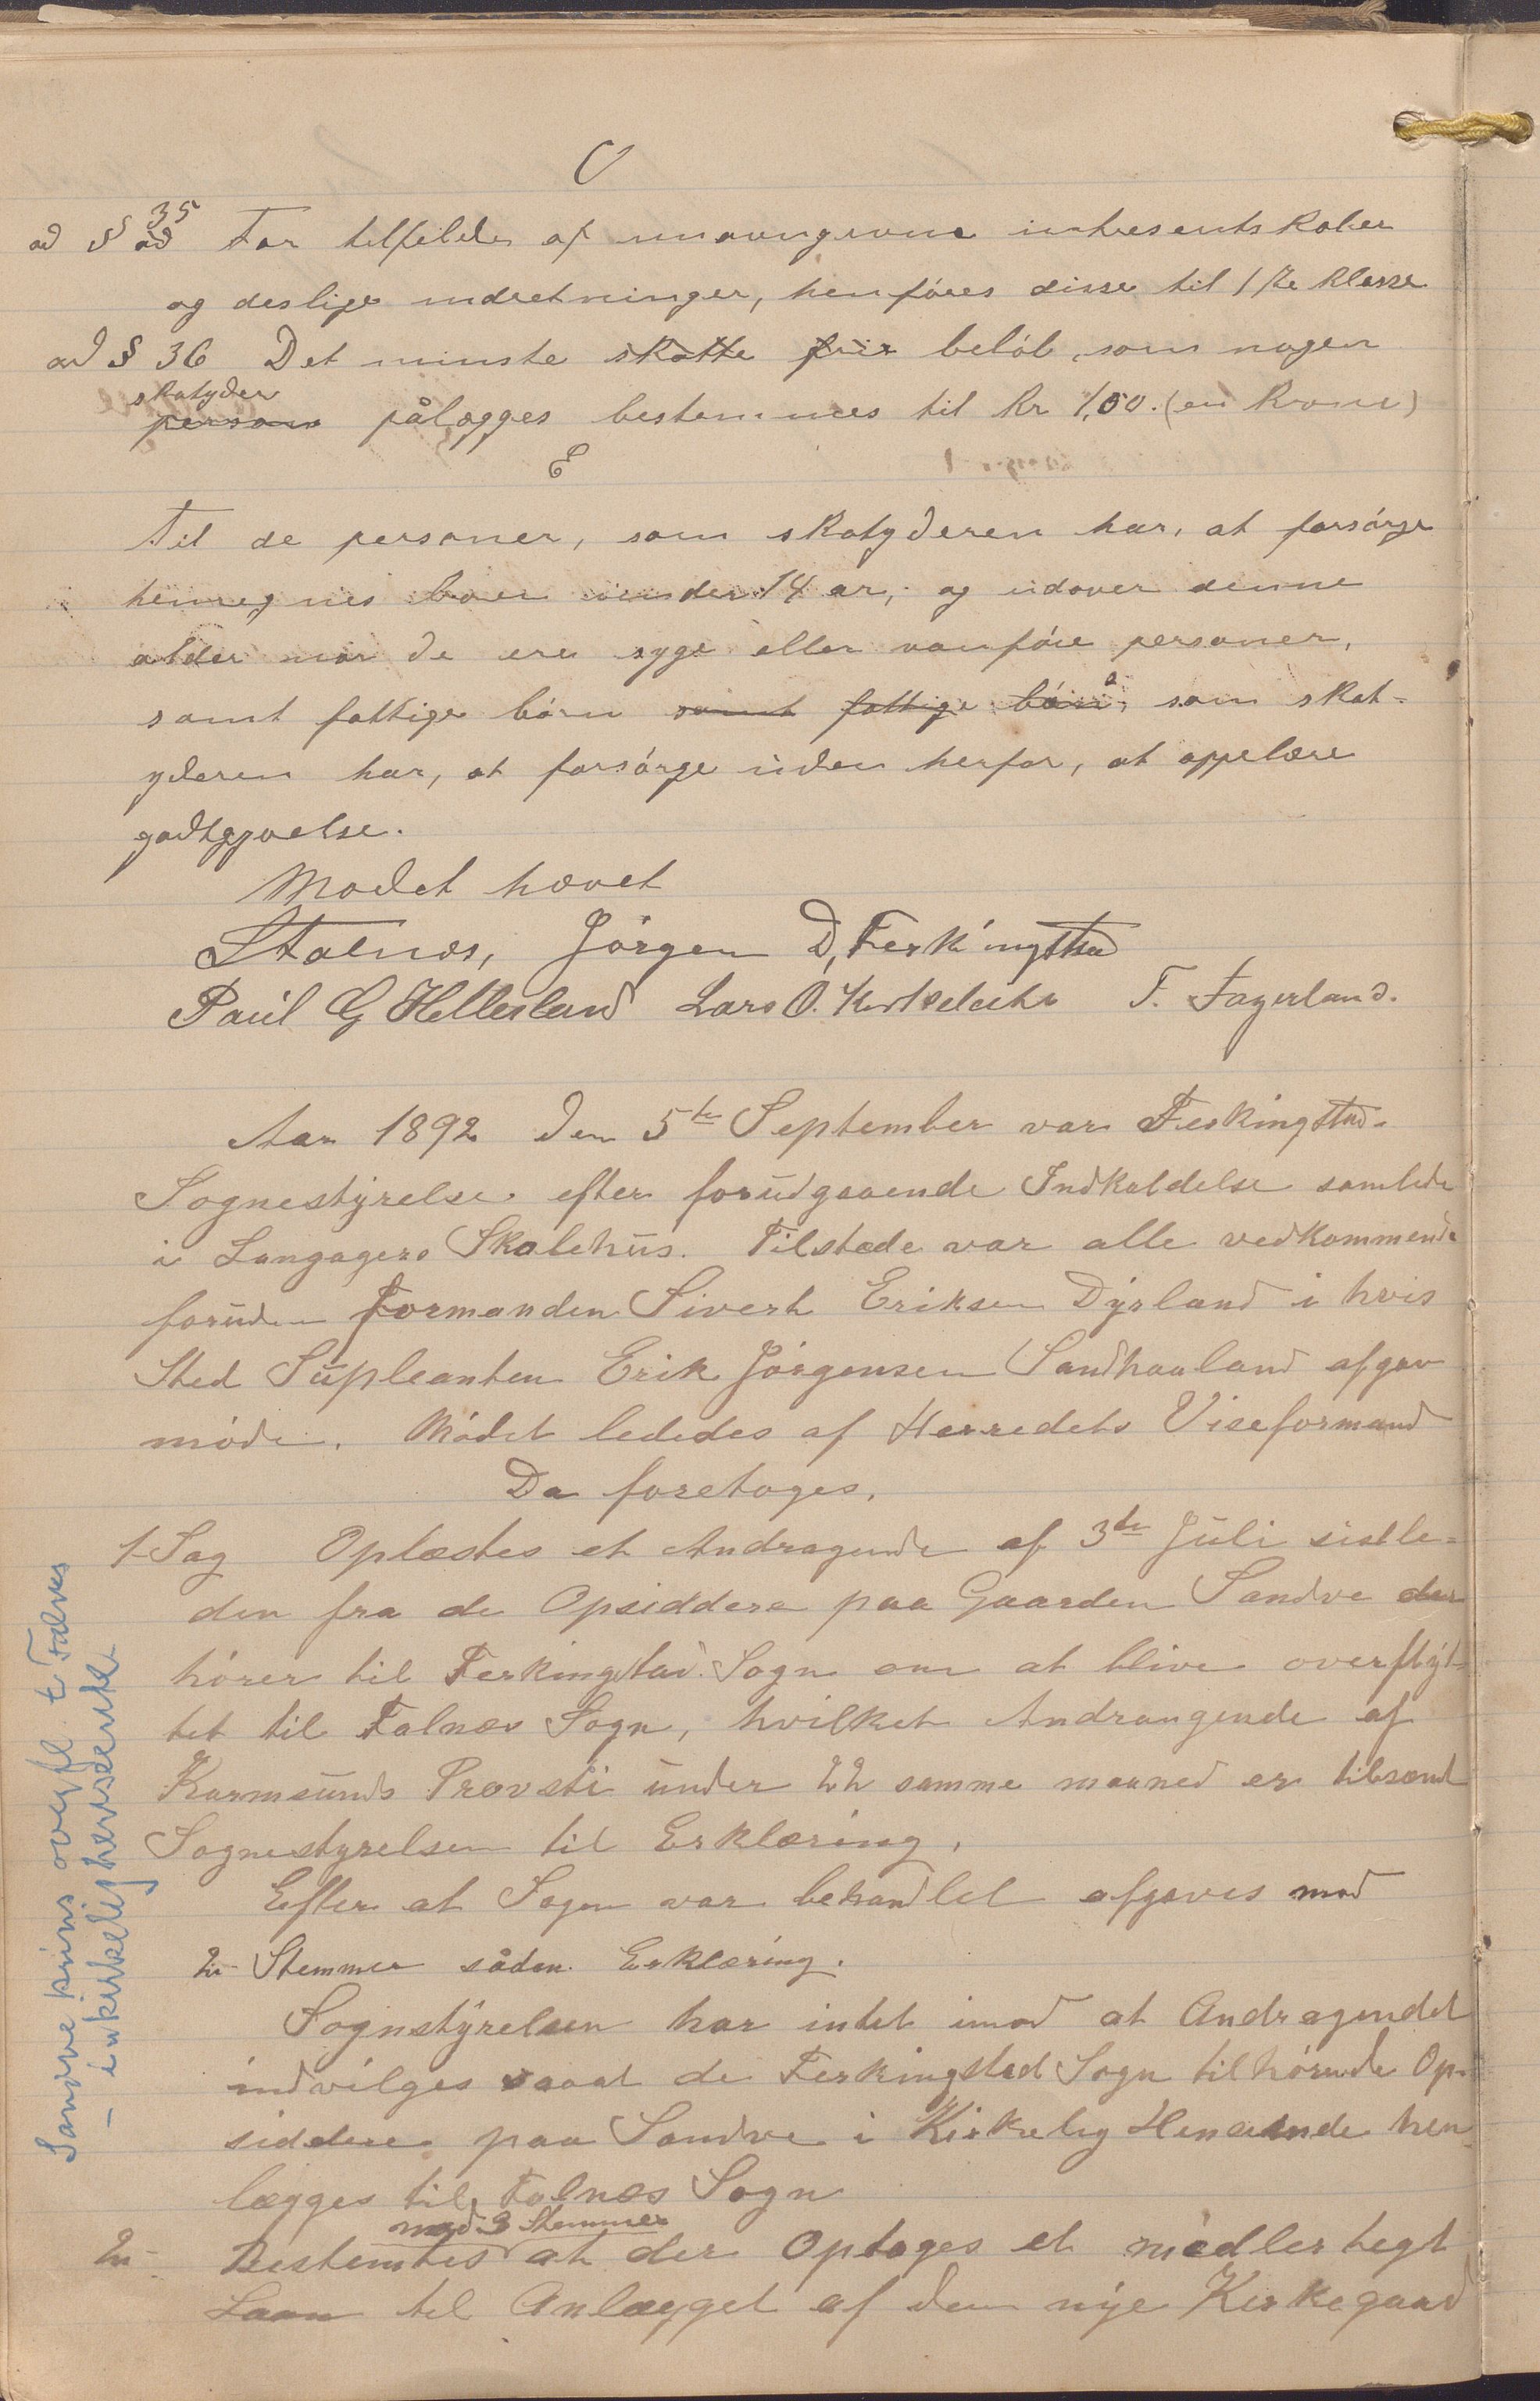 C
ad § 35 For tilfelde af unavngivne intresentskaber
og deslige indretninger, henføres disse til 1ste klasse
ad § 36 Det minste skatte frie beløb, som nogen
skatyder
person pålægges bestemmes til kr 1,00. (en krone)
E
Til de personer, som skatyderen har, at forsørge
henregnes børn under 14 år, og udover denne
alder når de ere syge eller vanføre personer,
samt fattige børn samt fattige børn, som skat-
yderen har, at forsørge uden herfor, at oppebære
godtgjøelse.
Mødet hævet
Stalnæs, Jørgen D, Ferkingstad
Paul G Hellesland Lars O. T. Fagerland.
Aar 1892 den 5te September var Ferkingstad
Sognestyrelse efter forudgaaende Indkaldelse samlede
i Langagers Skolehus. Tilstede var alle vedkommende
foruden Formanden Sivert Eriksen Dyrland i hvis
Sted Supleanten Erik Jørgensen Sandhaaland afgav
møde. Mødet lededes af Herredets Viseformand
Da foretoges.
1-Sag Oplæstes et Andragende af 3de Juli sistle-
den fra de Opsiddere paa Gaarden Sandve der
hører til Ferkingstad Sogn om at blive overflyt-
tet til Falnæs Sogn, hvilket Andrangende af
Karmsunds Provsti under 22 samme maaned er tilsendt
Sognestyrelsen til Erklæring.
Efter at Sagen var behandlet afgaves mod
2 Stemmer såden Erklæring.
Sognstyrelsen har intet imod at Andragendet
indvilges saaat de Ferkingstad Sogn tilhørende Op-
siddere paa Sandve i Kirkelig Henseende hen-
lægges til Falnæs Sogn
med 3 Stemmer
2- Bestemtes at der Optages et midlertegt
Laan til Anlægget af den nye Kirkegaard
Sandve overfl. t Falnes
- i kirkelig henseende